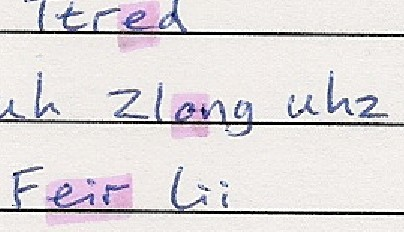 Ttred
uh Zlong uhz
Feir Lii